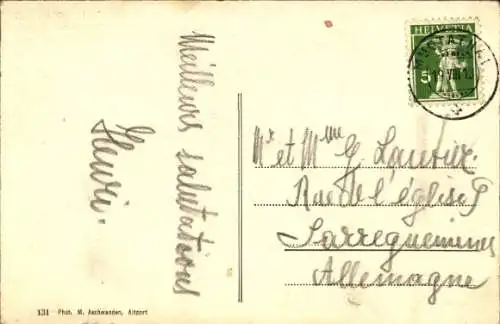 Meilleures salutations
Henri.
HELVETIA
5
Mr et Mme G.
Rue de l'église 9
Sarreguemines
Allemagne
131 Phot. M. Aschwanden, Altdorf